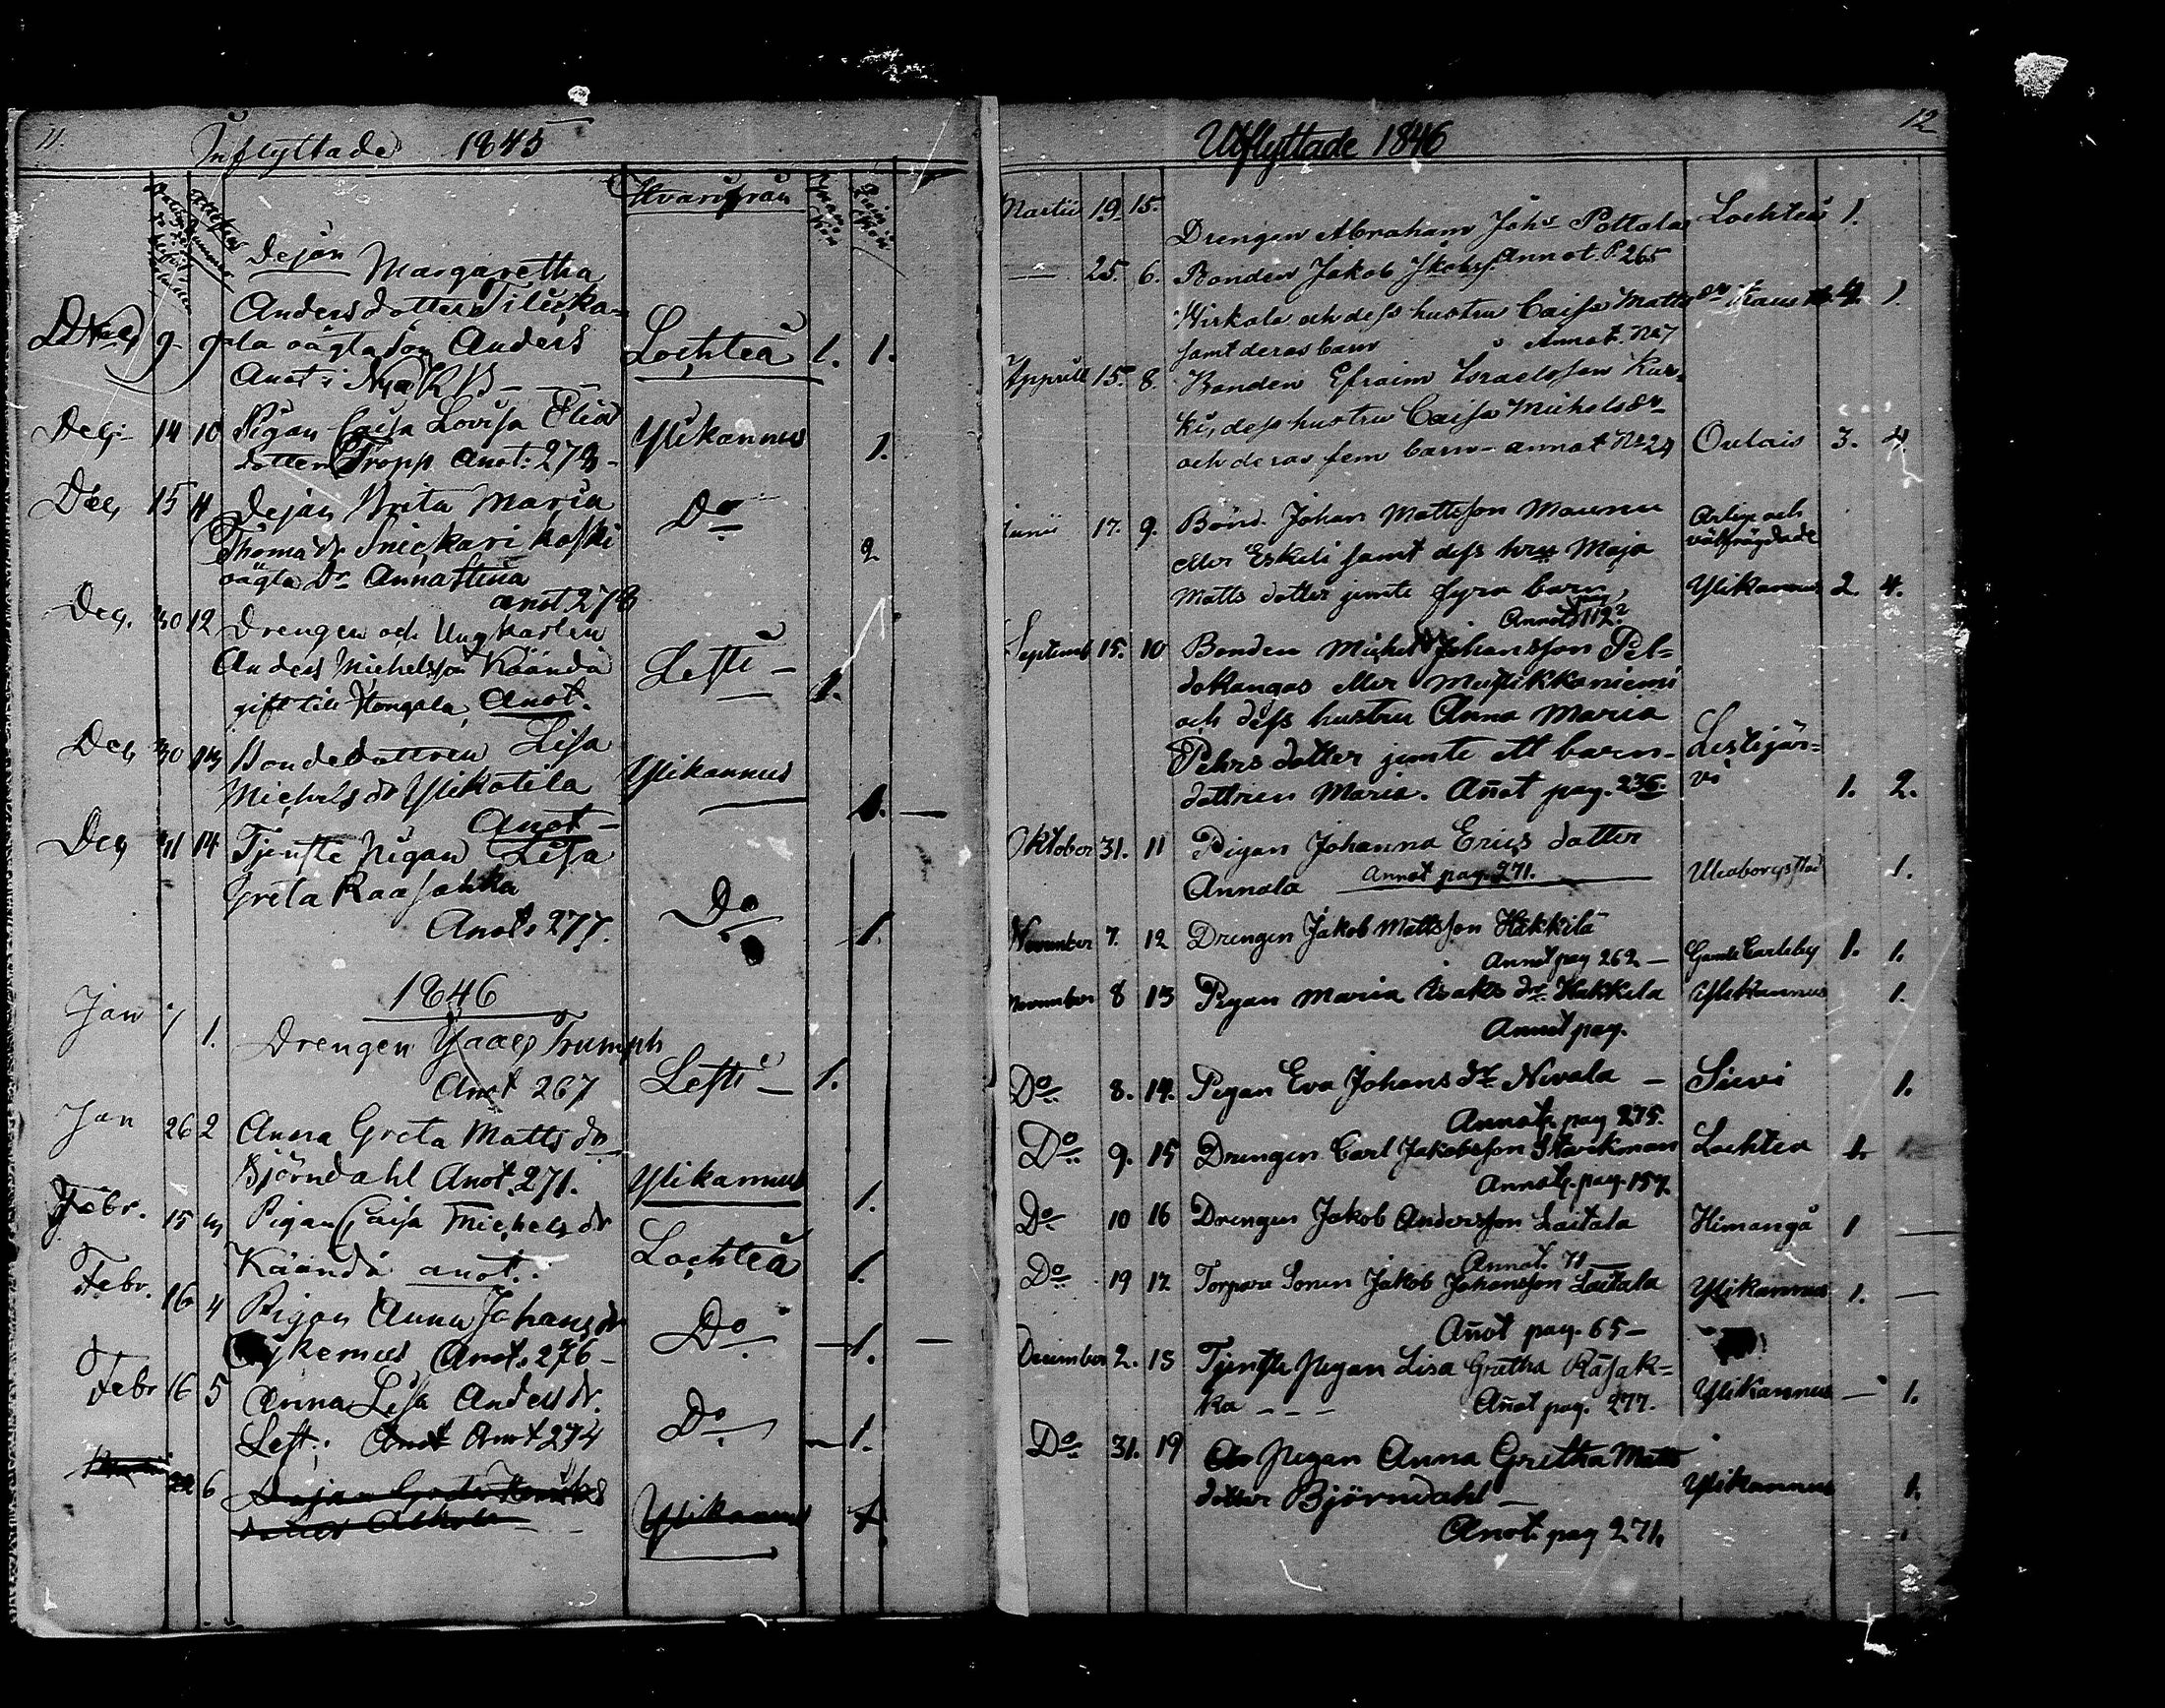 11.
Inflyttade 1845
Hvarifrån
Dejan Margaretha
Anders dotter Tilicka=
Dec 9 9 la oägta son Anders Lochteå 1. 1.
Anot i Nya KB
Dec: 14 10 Pigan Caisa Lovisa Elias Ylikannus 1.
dotter Tropp Anot: 273
Dec 15 11 Dejan Brita Maria Do
Thomas dr Snickari koski 2
oägta Dr Anna Stina
anot 278
Dec. 30 12 Drengen och Ungkarlen
Anders Michelsson Käändä Lesti 1.
gift till Hongala Anot.
Dec 30 13 Bondedottren Lisa Ylikannus
Michels dr Ylikotila 1.
Anot
Dec 31 14 Tjenste pigan Lisa
Greta Raasakka Do 1.
Anot. 277.
1846
Jan 7 1. Drengen Isaac Trumph Lesti 1.
Anot 267
Jan 26 2 Anna Greta Matts dr
Björndahl Anot. 271. Ylikannus 1.
Febr. 15 3 Pigan Caisa Michels dr
Käändä anot. Lochteå 1.
Febr. 16 4 Pigan Anna Johans dr
Anot. 276 Do 1.
Febr 16 5 Anna Lisa Anders dr.
Lest: Anot Anot 274 Do 1.
22 6 Dejan Greta
dotter Ylikannus 1
12
Utflyttade 1846
Martii 19 15. Drengen Abraham Johs Pottala Lochteå 1.
Annot. P. 265
25. 6. Bonden Jakob Jkobss.
Wirkala och dess hustru Caisa Matts dr 1.
samt deras barn Annot. No 7
Appriil 15. 8. Bonden Efraim Israelsson Kur=
ki, dess hustru Caisa Michels dr
och deras fem barn annot No 24 Oulais 3. 4.
Junii 17. 9. Bond. Johan Mattsson Maunu och
eller Eskeli samt dess hru Maja
Matts dotter jemte fyra barn, Ylikannus 2. 4.
Annot pag 112
Septemb 15. 10 Bonden Michel Johansson Pel=
dokangas eller Mustikkaniemi
och dess hustru Anna Maria
Pehrs dotter jemte ett barn- Lestijär=
dottren Maria. Anot pag. 236. vi 1. 2.
Oktober 31. 11 Pigan Johanna Erics dotter
Annala Annot pag. 271. Uleaborgs stad 1.
November 7. 12 Drengen Jakob Mattsson Häkkilä
Annot pag 262. Gamle Carleby 1. 1.
November 8 13 Pigan Maria Isaks dr Häkkila Ylikannus 1.
Annot pag.
Do 8. 14. Pigan Eva Johans dr Nivala Sievi 1.
Annot. pag 275.
Do 9. 15 Drengen Carl Jakobsson Starckman Lochtea 1.
Annot. pag. 157.
Do 10 16 Drengen Jakob Andersson Laitala Himangå 1
Annot. 71
Do 19 17 Torpare Sonen Jakob Johansson Laitala Ylikannus 1.
Anot pag. 65
December 2. 18 Tjenste pigan Lisa Gretha Räsak=
ka Anot pag. 277. Ylikannus 1.
Do 31. 19 Pigan Anna Gretha Matts
dotter Björndahl Ylikannus 1.
Anot. pag 271.